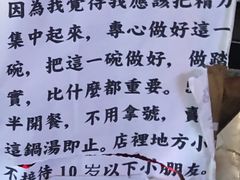 因為我覺得我應該把精力
集中起來，專心做好這一
碗，把這一碗做好，做踏
實，比什麼都重要。
半開餐，不用拿號，賣
這鍋湯即止。店裡地方小
不接待10岁以下小朋友。